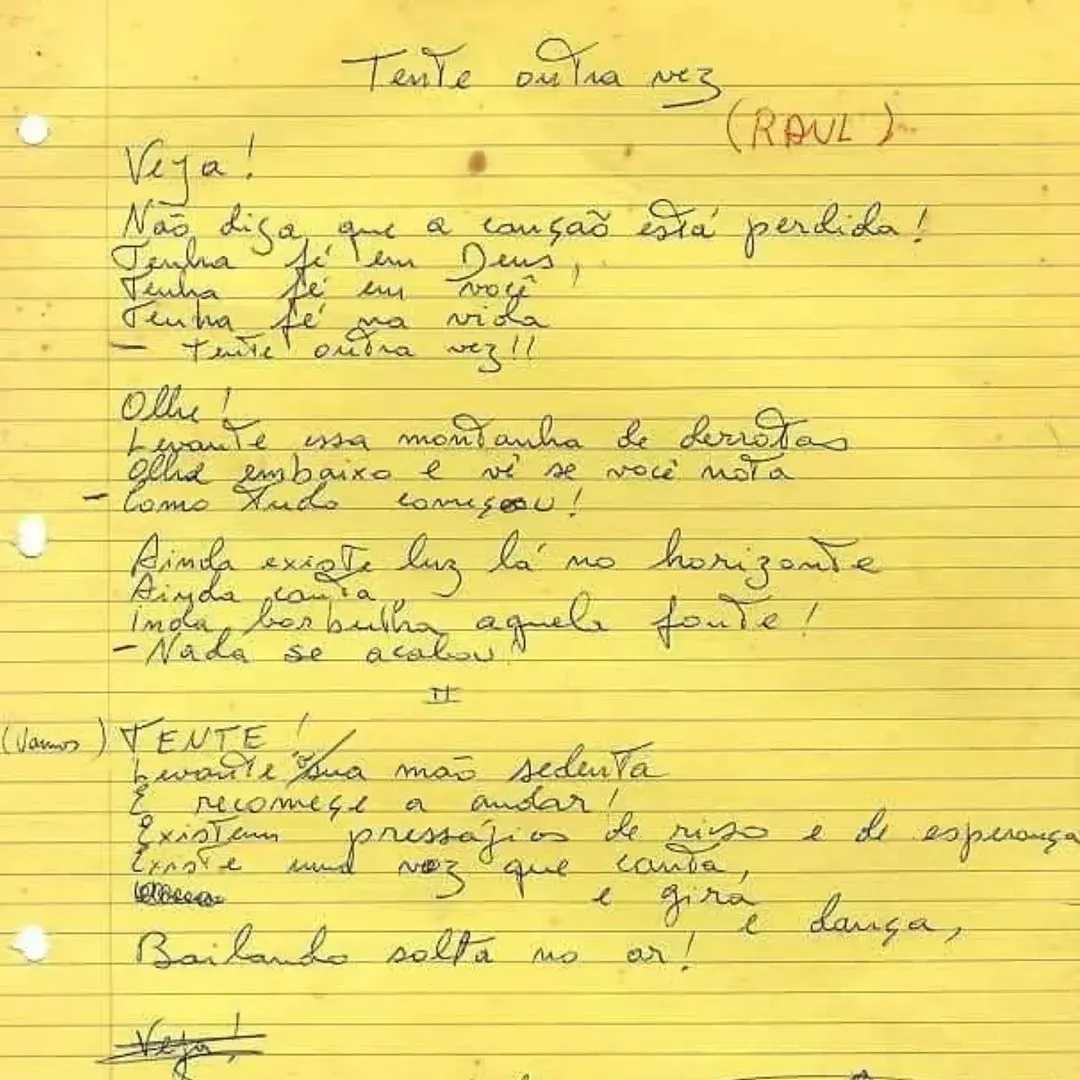 Tente outra vez
(RAUL)
Veja!
Não diga que a canção está perdida!
Tenha fé em Deus,
Tenha fé em você,
Tenha fé na vida
- Tente outra vez!!
Olhe!
Levante essa montanha de derrotas
Olhe embaixo e vê se você nota
- Como tudo começou!
Ainda existe luz lá no horizonte
Ainda canta,
Inda borbulha aquela fonte!
- Nada se acabou!
II
(Vamos) TENTE!
Levante sua mão sedenta
E recomeçe a andar!
Existem pressájios de riso e de esperança
Existe uma voz que canta,
e gira
e dança,
Bailando solta no ar!
Veja!